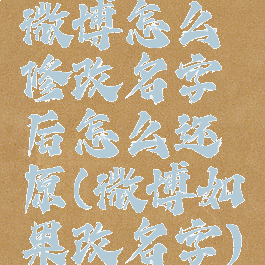 微博怎么
修改名字
后怎么还
原(微博如
果改名字)